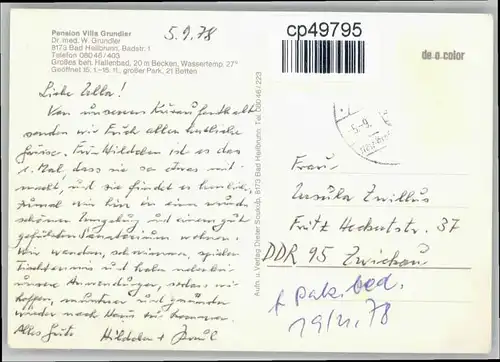 Pension Villa Grundler
Dr. med. W. Grundler
8173 Bad Heilbrunn, Badstr. 1
Telefon 080 46 / 403
Großes beh. Hallenbad, 20 m Becken, Wassertemp. 27°
Geöffnet 15. 1.-15. 11., großer Park, 21 Betten
5.9.78
cp49795
de o color
Liebe Ulla!
Von unserem Kuraufenthalt
senden wir Euch allen herzliche
Grüsse. Für Hildchen ist es das
1. Mal, dass sie so etwas mit-
macht, und sie findet es herrlich,
zumal wir hier in einer wunder-
schönen Umgebung und einem gut
geführten Sanatorium wohnen.
Wir wandern, schwimmen, spielen
Tischtennis und haben nebenbei
unsere Anwendungen, sodass wir
hoffen, munterer und gesünder
wieder nach Haus zu kommen.
Alles Gute Hildchen +
Aufn. u. Verlag Dieter Soukup, 8173 Bad Heilbrunn, Tel. 080 46 / 223
-5.-9.
Frau
Ursula Zwillus
Fritz Heckertstr. 37
DDR 95 Zwickau